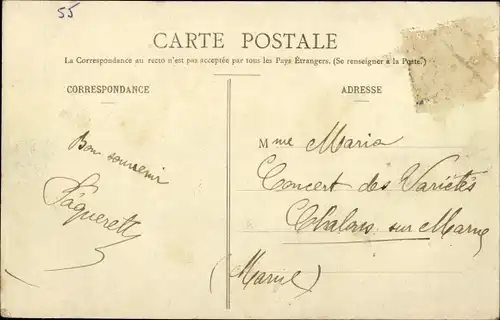 55
CARTE POSTALE
La Correspondance au recto n'est pas acceptée par tous les Pays Étrangers. (Se renseigner à la Poste.)
CORRESPONDANCE
ADRESSE
Bon souvenir
Pâquerette
Mme Maria
Concert des Variétés
Chalons sur Marne
(Marne)